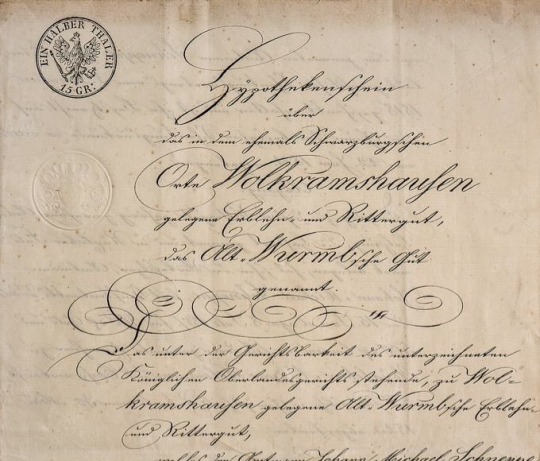 EIN HALBER THALER
15 GR:
Hÿpothekenschein
über
das in dem ehemals Schwarzburgschen
Orte Wolkramshausen
gelegene Erblehn- und Rittergut,
das Alt-Wurmb'sche Gut
genannt.
Das unter der Gerichtsbarkeit des unterzeichneten
Königlichen Oberlandesgerichts stehende, zu Wol-
kramshausen gelegene Alt-Wurmb'sche Erblehn-
und Rittergut,
Johann Michael